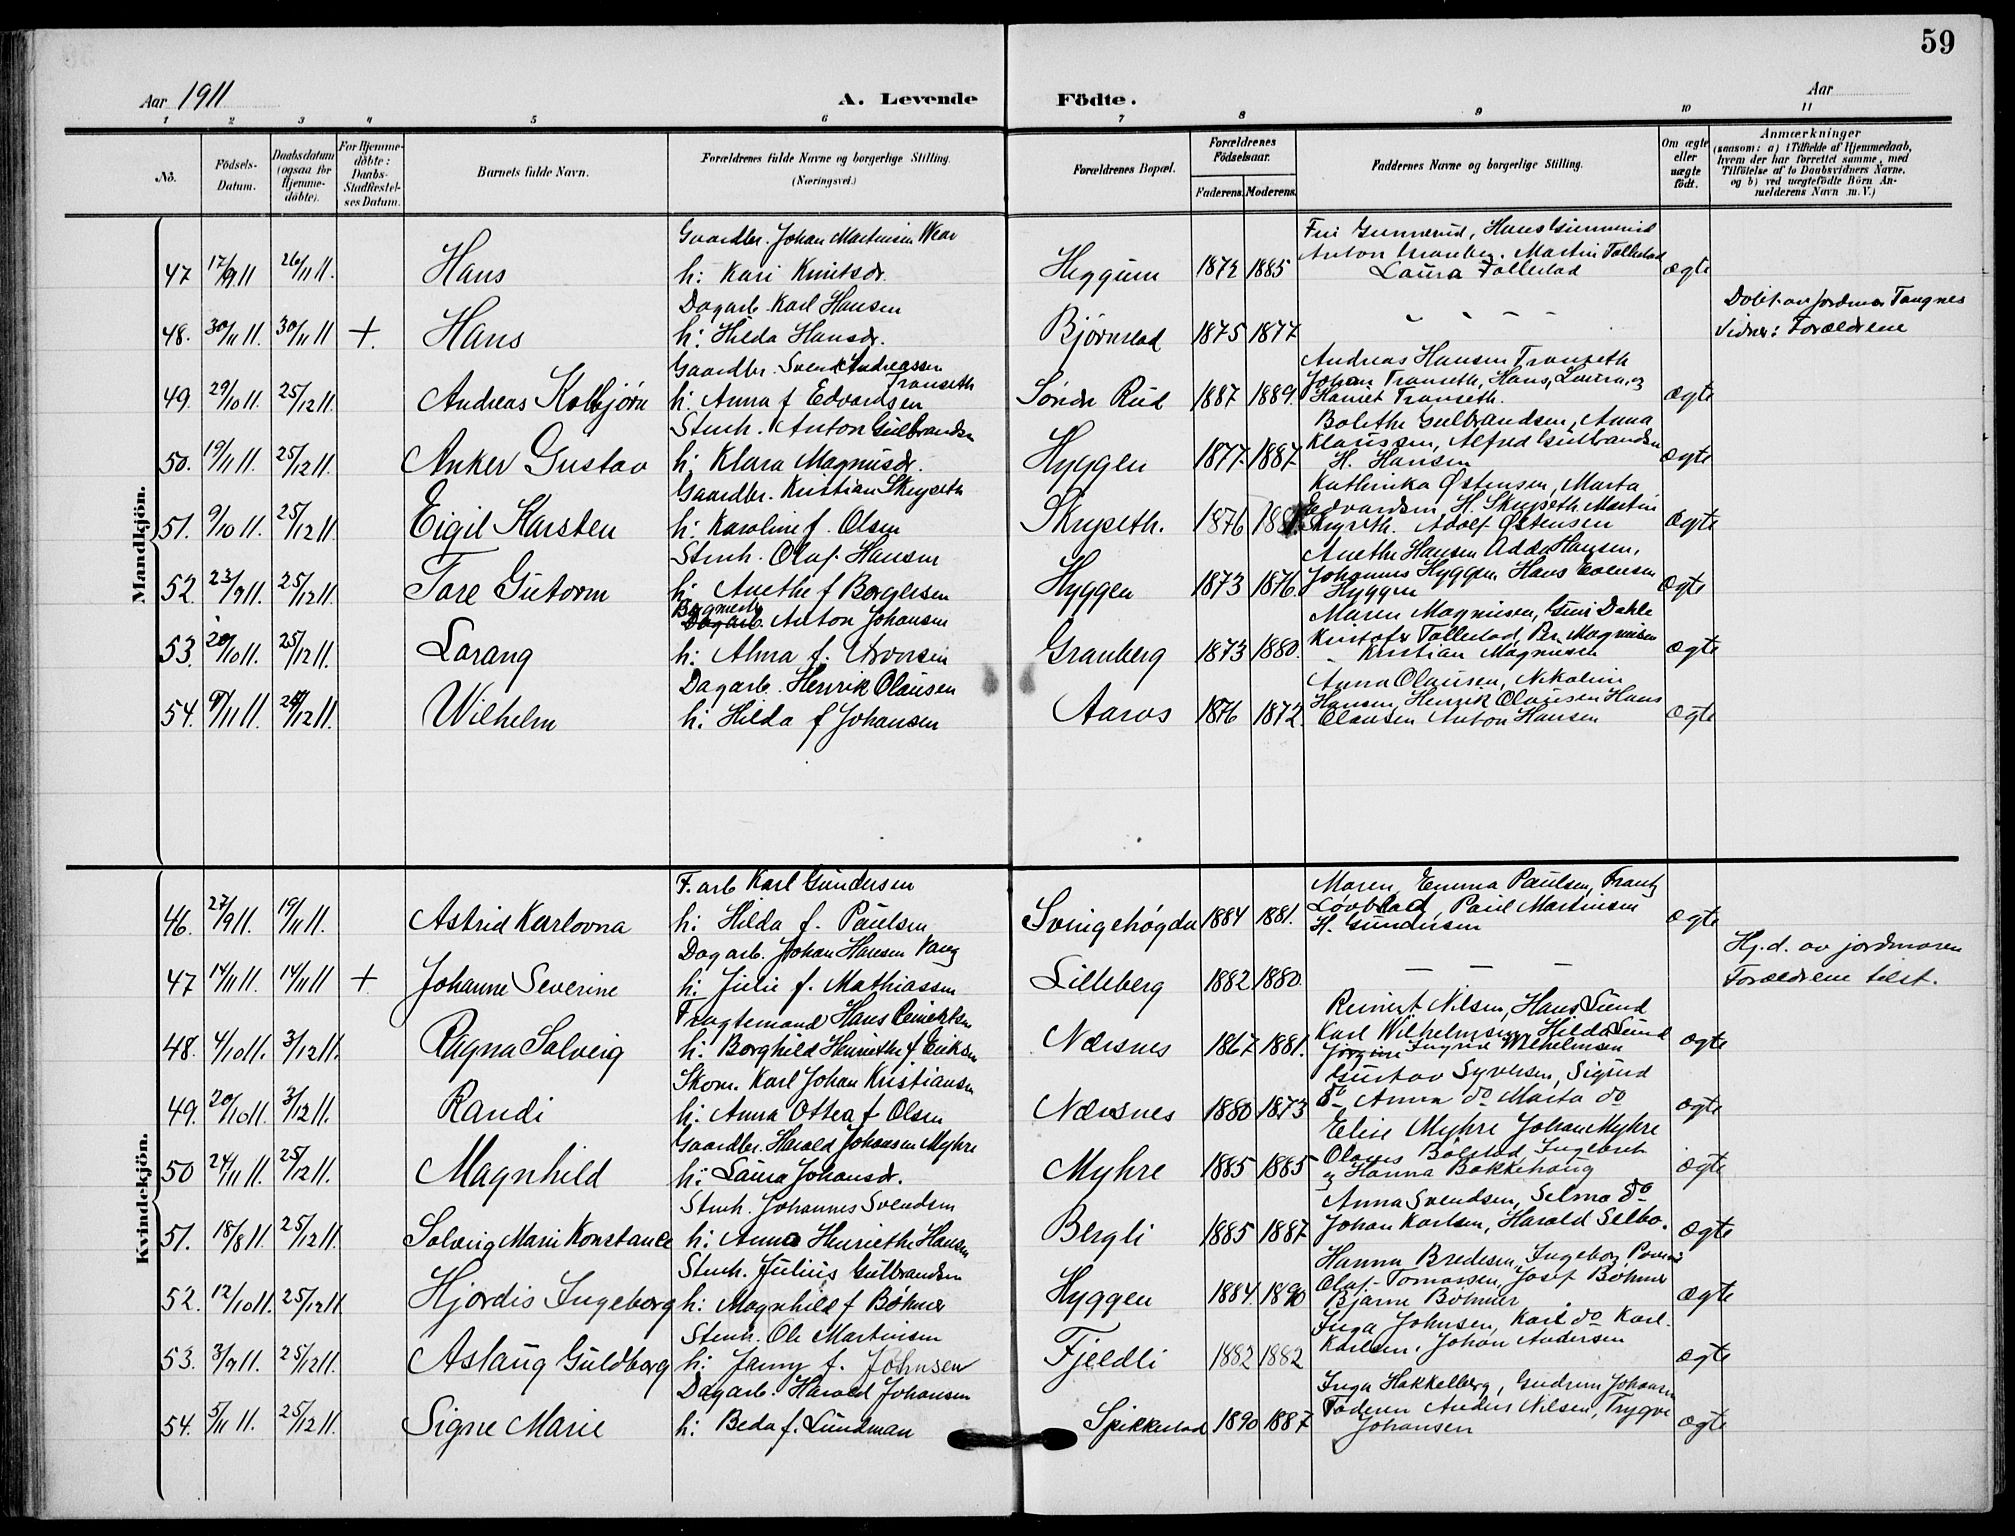 59
Aar 1911
A. Levende Födte.
Aar
1 2 3 4 5 6 7 8 9 10 11
No.
Födsels-Datum.
Daabsdatum (ogsaa for Hjemme-döbte).
For Hjemme-döbte: Daabs-Stadfæstel-ses Datum.
Barnets fulde Navn.
Forældrenes fulde Navne og borgerlige Stilling.
(Næringsvei.)
Forældrenes Bopæl.
Forældrenes Födselsaar.
Faderens. Moderens.
Faddernes Navne og borgerlige Stilling.
Om ægte eller uægte födt.
Anmærkninger
(saasom: a) i Tilfælde af Hjemmedaab, hvem der har forrettet samme, med Tilföielse af to Daabsvidners Navne, og b) ved uægtefödte Börn An-melderens Navn m. V.)
Mandkjön.
Gaardbr. Johan Martinsen Wear
Hans Gunnerud
47 17/9 11 26/11 11. Hans h: Kari Knutsdr. Heggum 1872 1885 Martin Tollestad Laura Tollestad ægte
Dagarb. Karl Hansen
48. 30/11 11. 30/11 11 + Hans h: Hilda Hansdr. Bjørnstad 1875 1877 - - - - Døbt av jordmor Tangnes Vidner: Forældrene
Gaardbr. Svend Andreassen Transeth
Andreas Hansen Transeth
49. 29/10 11. 25/12 11. Andreas Kolbjørn h: Anna f Edvardsen Søndr Rud 1887 1889. Johan Transeth, Hans, Laura, og Harriet Transeth. ægte
Stenh. Anton Gulbrandsen
Bolethe Gulbrandsen, Anna
50. 19/11 11. 25/12 11. Anker Gustav h: Klara Magnusdr. Hyggen 1877. 1887. Klaussen, Alfred Gulbrandsen H. Hansen ægte
Gaardbr. Kristian Skryseth
Kathinka Østensen, Marta
51. 9/10 11. 25/12 11. Eigil Karsten h: Karoline f. Olsen Skryseth. 1876 Edvardsen H. Skryseth Martin Skryseth. Adolf Østensen ægte
Stenh. Olaf Hansen
Anethe Hansen Adda Hansen,
52. 23/9 11. 25/12 11. Tore Gutorm h: Anethe f Borgersen Hyggen 1873 1876 Johannes Hyggen, Hans Evensen Hyggen ægte
Bygmestr. Dagarb. Anton Johansen
Maren Magnusen, Guri Dahle
53. 20/10 11. 25/12 11. Lorang h: Alma f. Granberg 1873 1880. Kristofer Tollestad, Br. Magnusen Kristian Magnusen ægte
Dagarb. Henrik Olausen
Anna Olausen, Nikoline
54. 9/11 11. 26/12 11. Wilhelm h: Hilda f Johansen Aaros 1876 1872 Hansen, Henrik Olausen Hans Olausen Anton Hansen ægte
Kvindekjön.
F. arb Karl Gundersen
Maren, Emma Paulsen, Frantz
46. 27/9 11. 19/11 11. Astrid Karlovna h: Hilda f. Paulsen Svingehøgda 1884 1881. Løvblad, Paul Martinsen H. Gundersen ægte
Dagarb. Johan Hansen
47 14/11 11. 14/11 11 + Johanne Severine h: Julie f. Mathiassen Lilleberg 1882 1880. — — — Hj.d. av jordmoren Forældrene tilst.
Fragtemand Hans Reinertsen
Reinert Nilsen, Hans Sund
48. 4/10 11. 3/12 11. Ragna Solveig h: Borghild Henriethe f Eriksen Nærsnes 1867 1881. Karl Wilhelmsen, Hilda Sund Jørgine Ingrid Wilhelmsen ægte
Skom. Karl Johan Kristiansen
Gustav Syversen, Sigurd
49. 20/10 11. 3/12 11. Randi h: Anna Othea f Olsen Nærsnes 1880 1873 do Anna do Marta do ægte
Gaardbr. Harald Johansen Myhre
Elise Myhre Johan Myhre
50 24/11 11. 25/12 11. Magnhild h: Laura Johansdr. Myhre 1885 1885 Olaves Bølstad, Ingebret og Hanna Bakkehaug ægte
Stenh. Johannes Svendsen
Anna Svendsen, Selma do
51. 18/8 11. 25/12 11. Solveig Marie Konstance h: Anna Henriethe Hansen Bergli 1885 1887 Johan Karlsen, Harald Selbo. ægte
Stenh. Julius Gulbrandsen
Hanna Bredesen, Ingeborg
52. 12/10 11. 25/12 11. Hjørdis Ingeborg h: Magnhild f Bøhmer Hyggen 1884. 1890 Olaf Tomassen, Josef Bøhmer Bjarne Bøhmer ægte
Stenh. Ole Martinsen
Inga Johnsen, Karl do Karl
53. 3/9 11. 25/12 11. Aslaug Guldborg h: Jenny f. Johnsen Fjeldli 1882 1882 Karlsen, Johan Andersen ægte
Dagarb. Harald Johansen
Inga Hakkelberg, Gudrun Johansen
54. 5/11 11. 25/12 11. Signe Marie h: Beda f. Lundman Spikkestad 1890 1887 Faderen Anders Nilsen, Trygve Johansen ægte